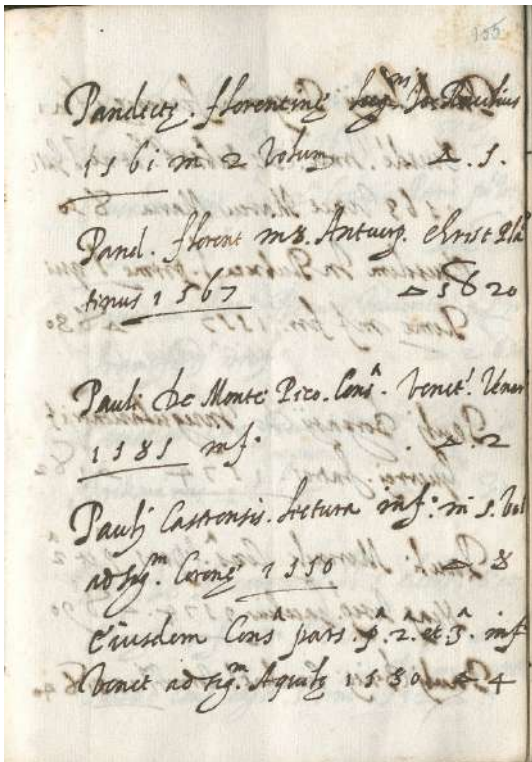 155
Pandectę. florentinę lugᵐ Jo:
1561 in 2 Volum. △. 5.
Pand. florent in 8. Antuerp. Christ Pla
tinus 1567 △ 5 ẞ 20
Pauli De Monte Pico. Consᵃ. Venetᶦ.
1581 in fᵒ. △. 2
Paulj Castrensis. lectura in fᵒ. in 5. Vol
ad sigᵐ. Coronę 1550 △ 8
Eiusdem Consᵃ pars. pᵃ. 2. et 3ᵃ. inf
Venet ad sigᵐ. Aquilę 1580 △ 4